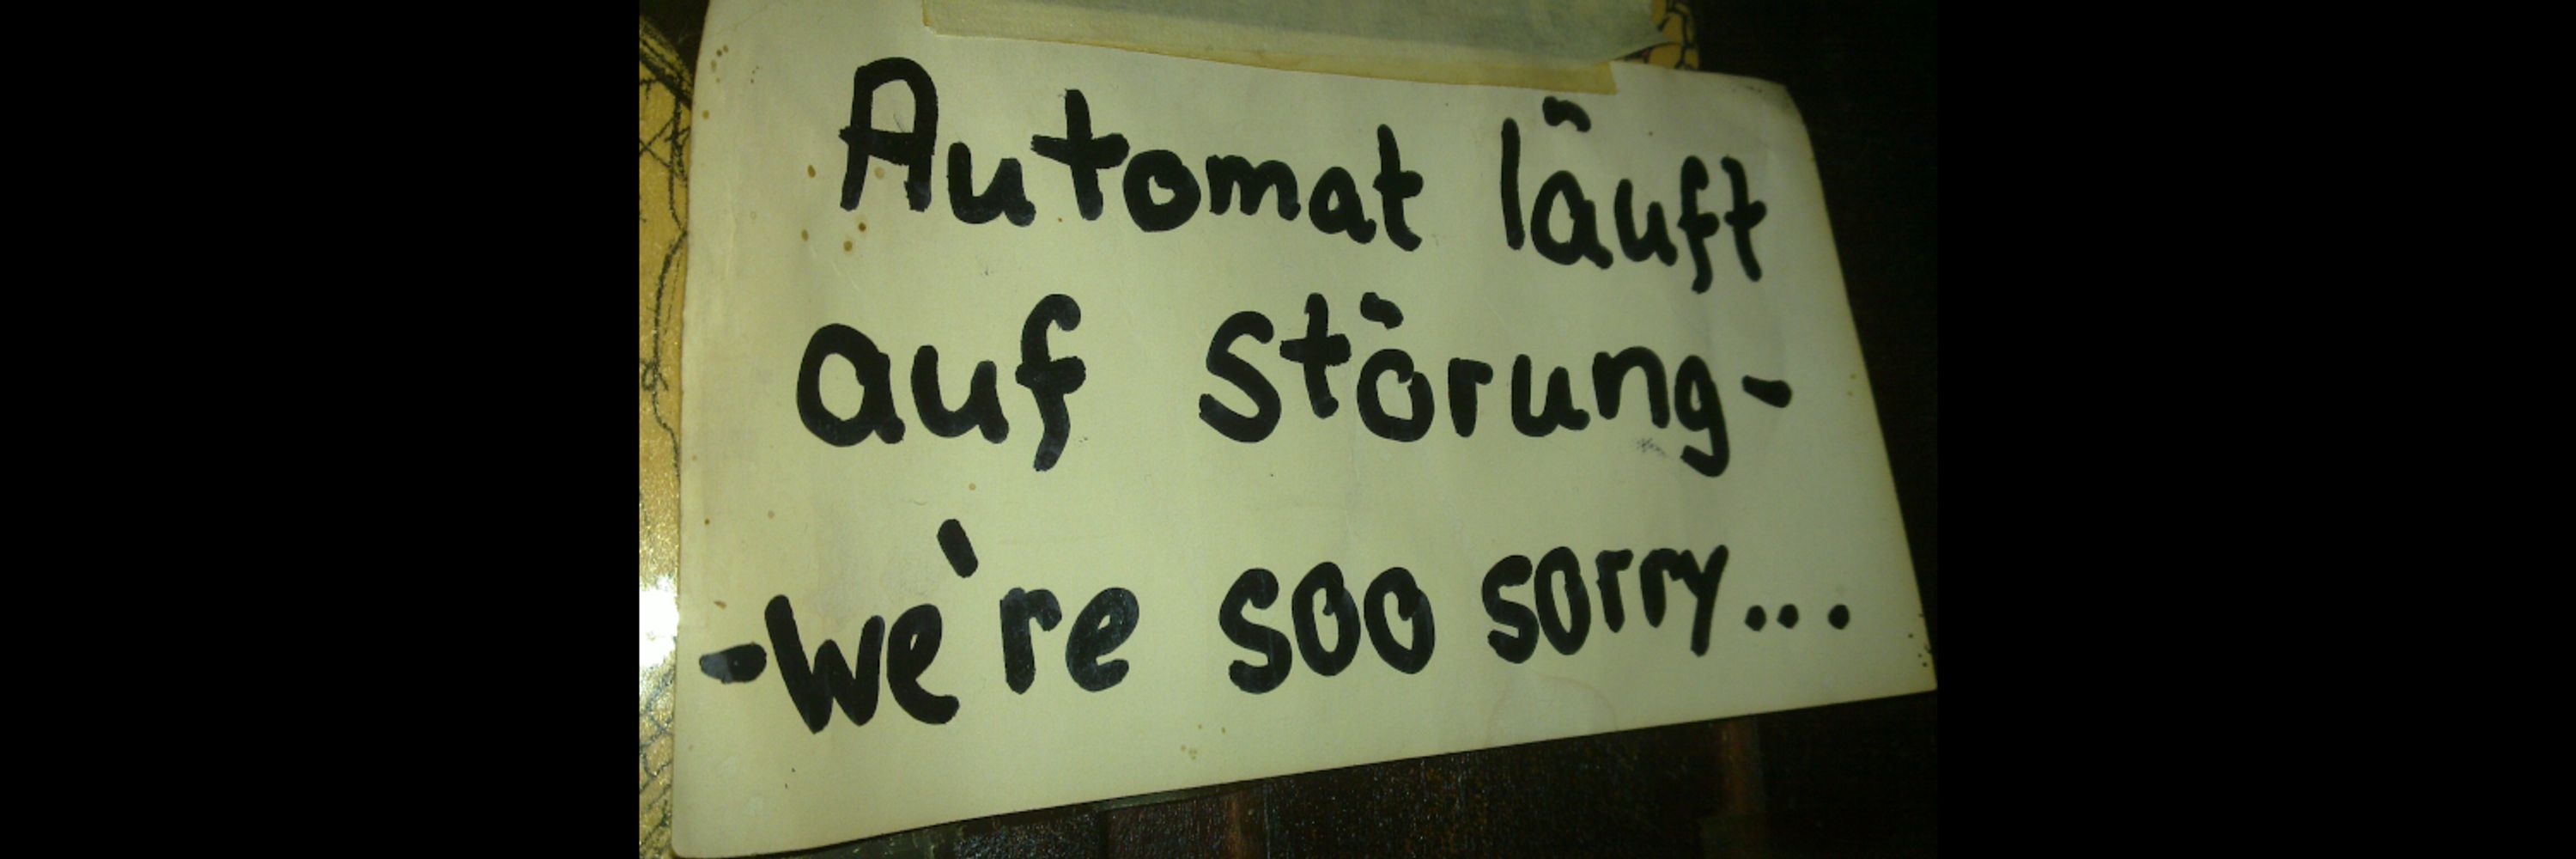 Automat läuft
auf Störung-
-we're soo sorry...